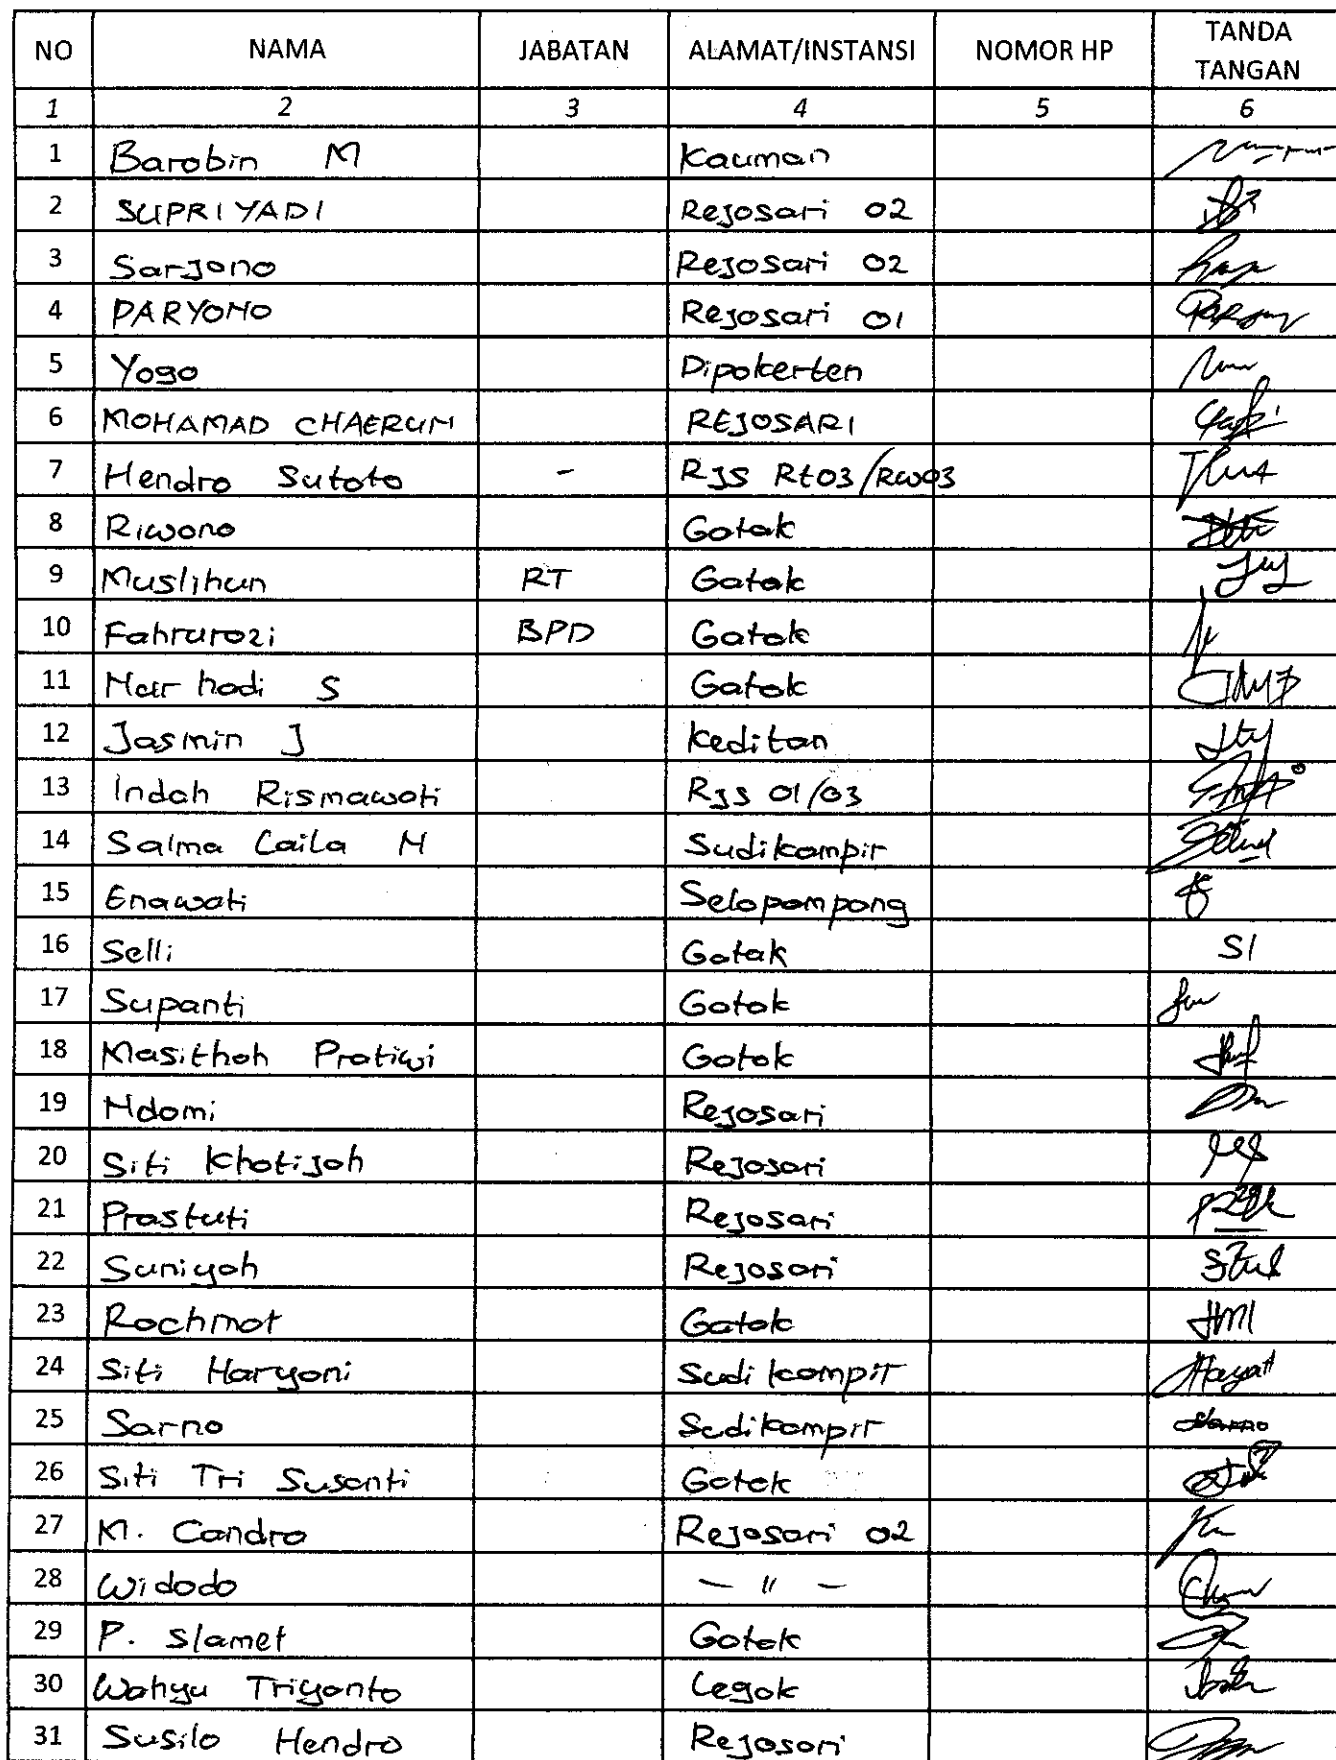 NO NAMA JABATAN ALAMAT/INSTANSI NOMOR HP TANDA TANGAN
1 2 3 4 5 6
1 Barobin M Kauman
2 SUPRIYADI Rejosari 02
3 Sarjono Rejosari 02
4 PARYONO Rejosari 01
5 Yogo Dipokerten
6 MOHAMAD CHAERUN REJOSARI
7 Hendro Sutoto - RJS Rt03/Rw03
8 Riwono Gatak
9 Muslihun RT Gatak
10 Fahrurozi BPD Gatak
11 Nur hadi S Gatak
12 Jasmin J Keditan
13 Indah Rismawati RJS 01/03
14 Salma Laila N Sudikampir
15 Enawati Selopampang
16 Selli Gatak SI
17 Supanti Gatak
18 Masithoh Pratiwi Gatak
19 Ndomi Rejosari
20 Siti Khotijah Rejosari
21 Prastuti Rejosari
22 Suniyah Rejosari
23 Rochmat Gatak
24 Siti Haryani Sudikampir Hayati
25 Sarno Sudikampir Sarno
26 Siti Tri Susanti Gatak
27 M. Candra Rejosari 02
28 Widodo - " -
29 P. Slamet Gatak
30 Wahyu Triyanto Legok
31 Susilo Hendro Rejosari